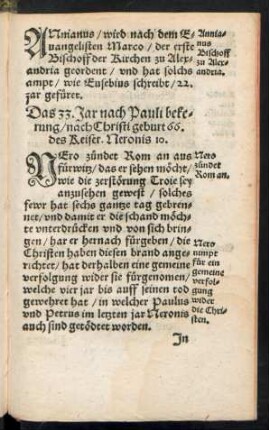 ANnianus / wird nach dem E-
uangelisten Marco / der erste
Bischoff der Kirchen zu Alex-
andria geordent / vnd hat solchs
ampt / wie Eusebius schreibt / 22.
jar gefüret.
Annia-
nus
Bischoff
zu Alex-
andria.
Das 33. Jar nach Pauli beke-
rung / nach Christi geburt 66.
des Keiser. Neronis 10.
NERo zündet Rom an aus
fürwitz / das er sehen möcht /
wie die zerstörung Troie sey
anzusehen gewest / solches
fewr hat sechs gantze tag gebren-
net / vnd damit er die schand möch-
te vnterdrücken vnd von sich brin-
gen / har er hernach fürgeben / die
Christen haben diesen brand ange-
richtet / hat derhalben eine gemeine
verfolgung wider sie fürgenomen /
welche vier jar bis auff seinen tod
gewehret hat / in welcher Paulus
vnd Petrus im letzten jar Neronis
auch sind getödtet worden.
Nero
zündet
Rom an.
Nero
nimpt
für ein
gemeine
verfol-
gung
wider
die Chri-
sten.
In